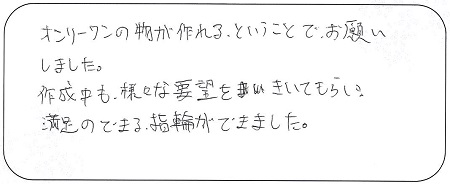 オンリーワンの物が作れる、ということで、お願い
しました。
作成中も、様々な要望をきいてもらい、
満足のできる、指輪ができました。